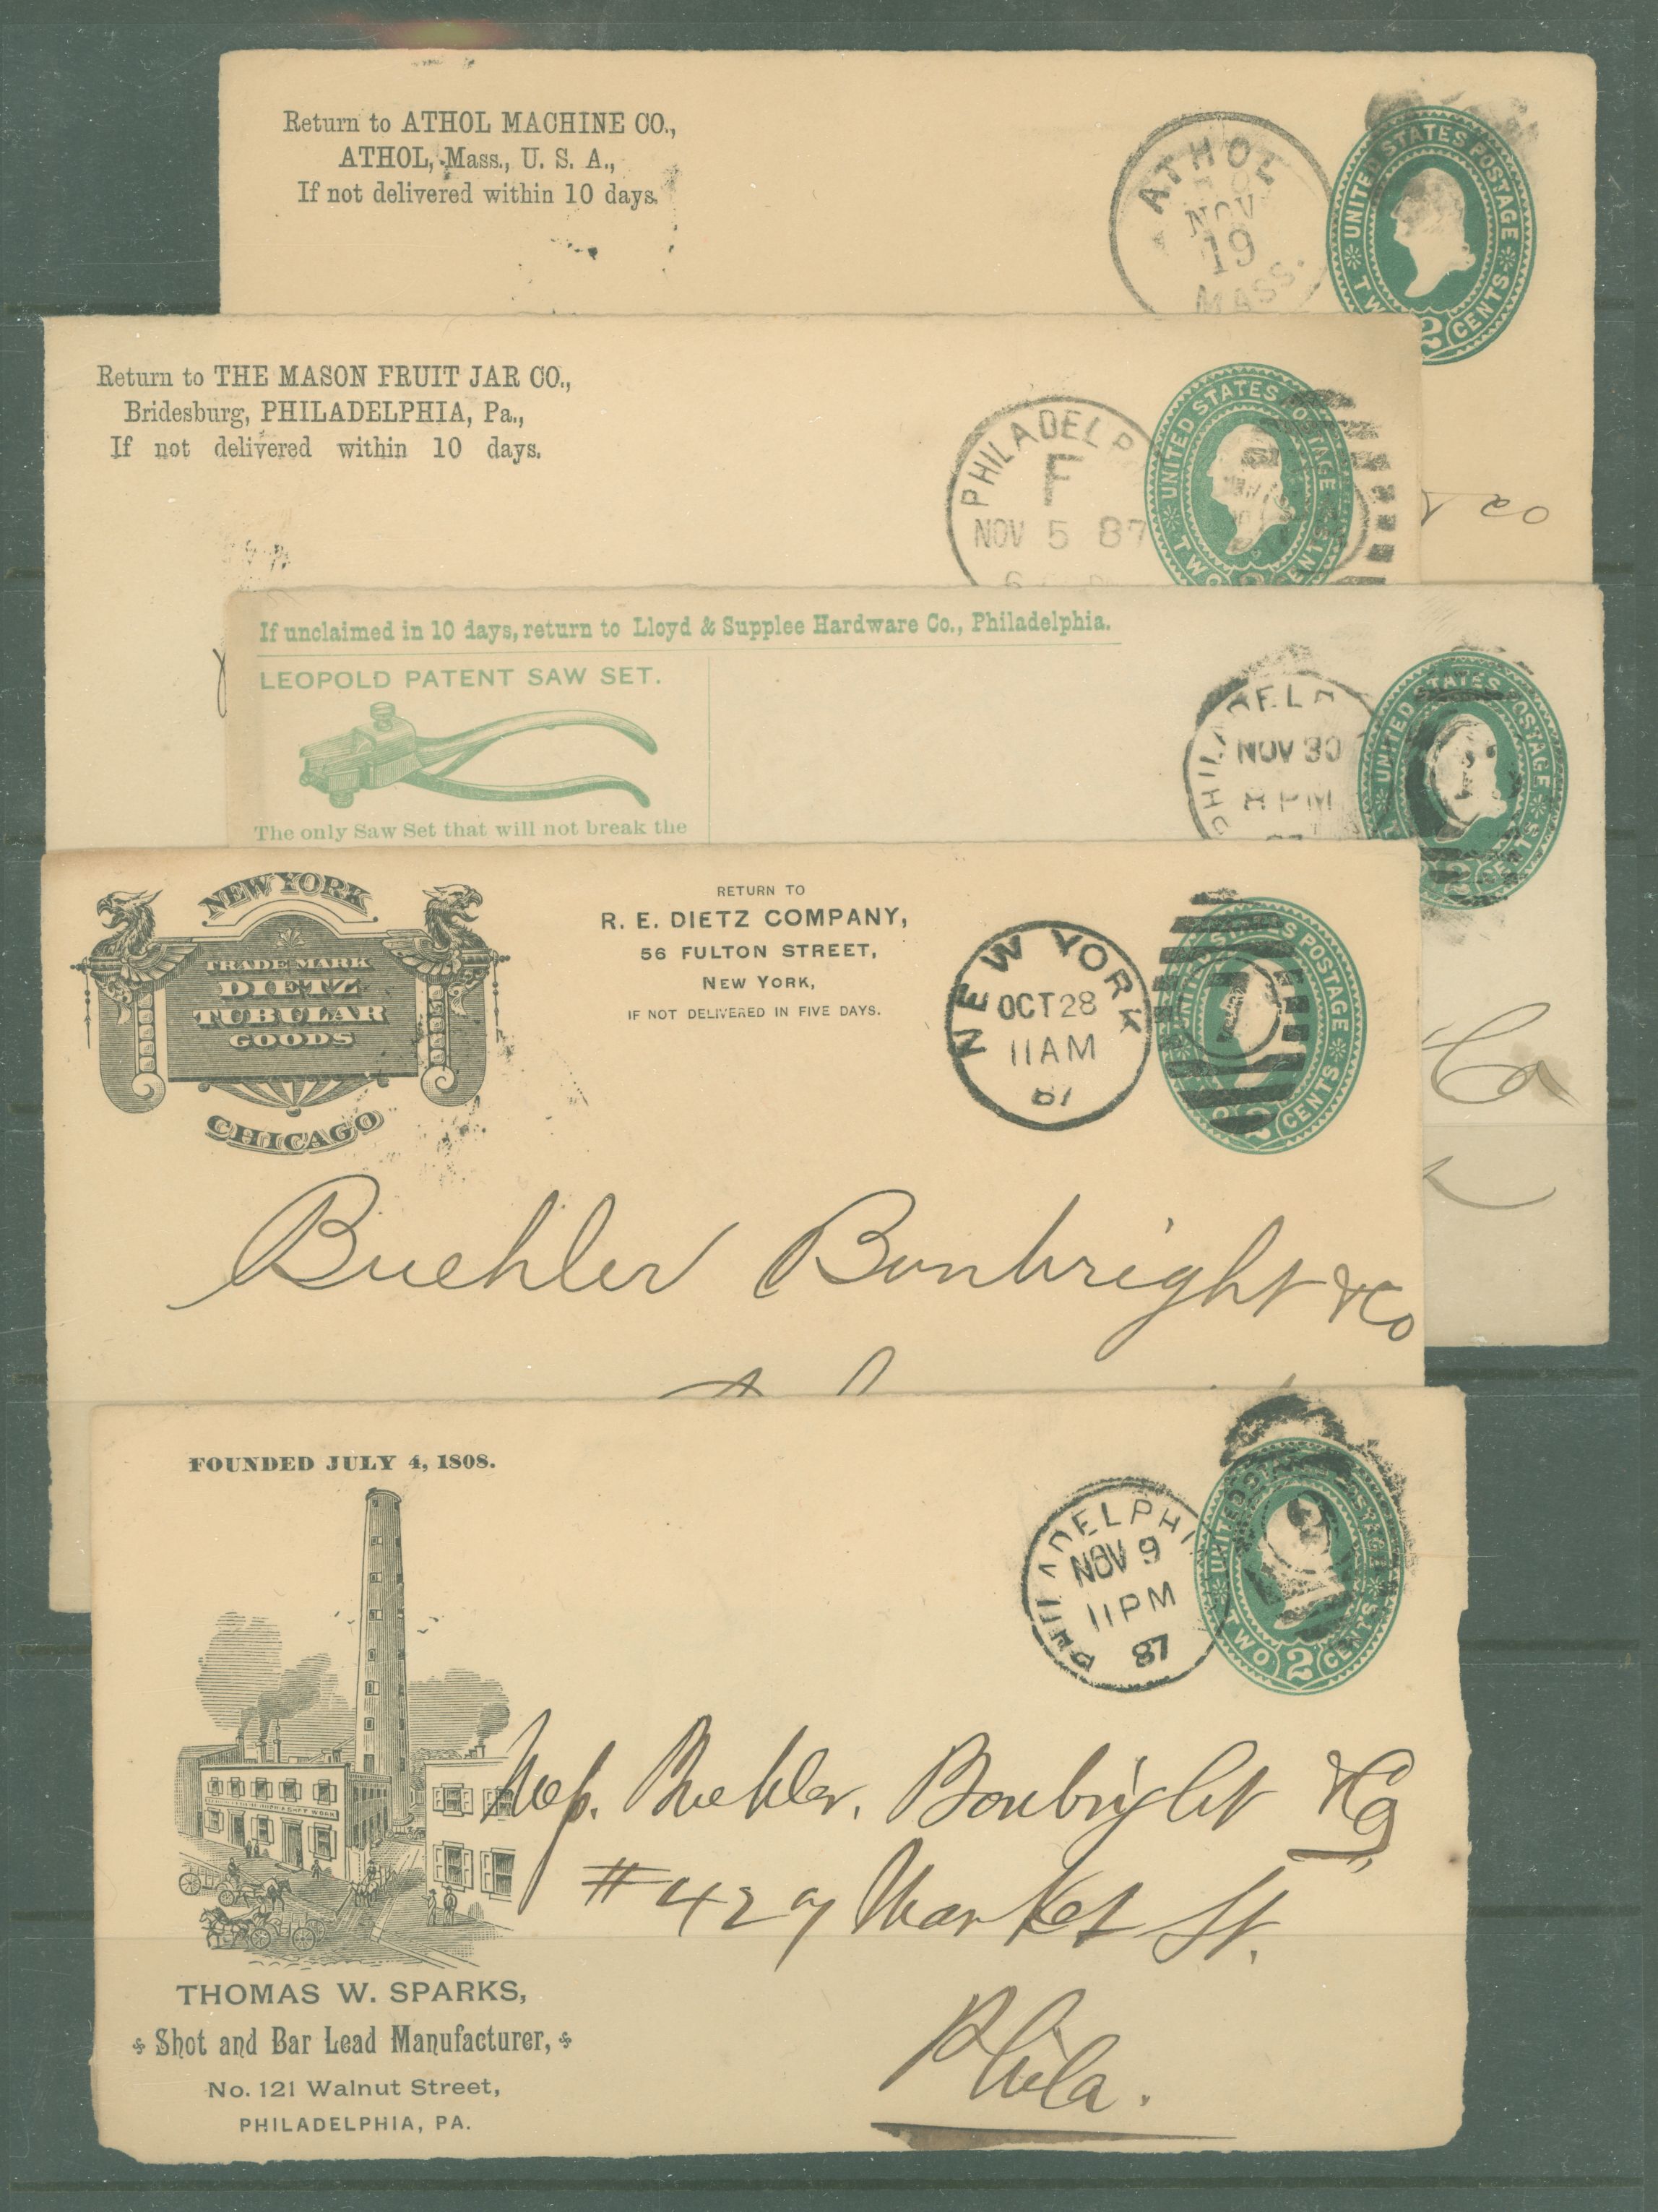 Return to ATHOL MACHINE CO.,
ATHOL, Mass., U. S. A.,
If not delivered within 10 days.
ATHOL
NOV
19
MASS.
UNITED STATES POSTAGE
TWO 2 CENTS
Co
Return to THE MASON FRUIT JAR CO.,
Bridesburg, PHILADELPHIA, Pa.,
If not delivered within 10 days.
PHILADELP
F
NOV 5 87
6
UNITED STATES POSTAGE
TWO CENTS
If unclaimed in 10 days, return to Lloyd & Supplee Hardware Co., Philadelphia.
LEOPOLD PATENT SAW SET.
The only Saw Set that will not break the
PHILADELP
NOV 30
8 PM
UNITED STATES POSTAGE
Co
NEW YORK
TRADE MARK
DIETZ
TUBULAR
GOODS
CHICAGO
RETURN TO
R. E. DIETZ COMPANY,
56 FULTON STREET,
NEW YORK,
IF NOT DELIVERED IN FIVE DAYS.
NEW YORK
OCT 28
11 AM
87
1
STATES POSTAGE
2 CENTS
Buehler Bonbright & Co
FOUNDED JULY 4, 1808.
PHILADELPHI
NOV 9
11 PM
87
2
UNITED STATES POSTAGE
TWO 2 CENTS
Mess. Buehler, Bonbright & Co
#427 Market St.
Phila.
THOMAS W. SPARKS,
Shot and Bar Lead Manufacturer,
No. 121 Walnut Street,
PHILADELPHIA, PA.